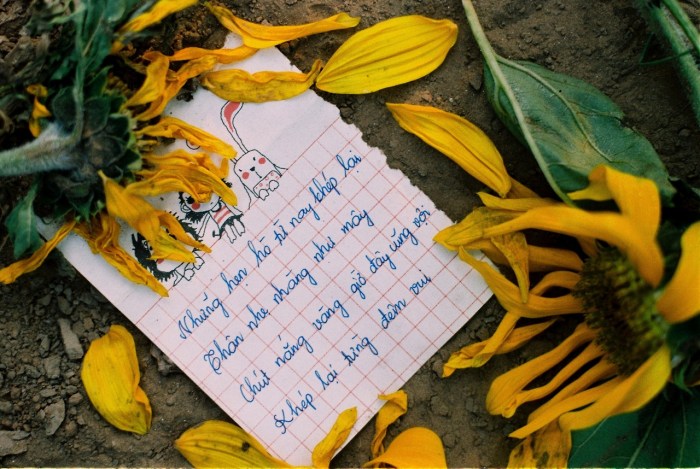 Những hẹn hò từ nay khép lại
Thân nhẹ nhàng như mây
Chút nắng vàng giờ đây cũng vội
Khép lại từng đêm vui